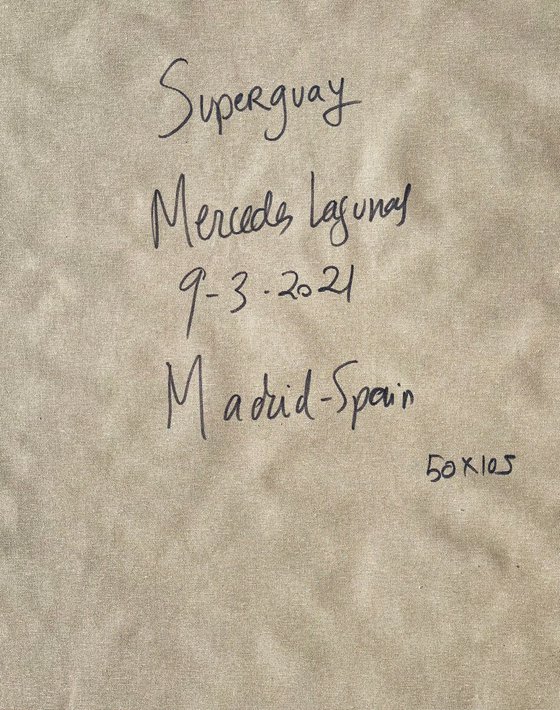 Superguay
Mercedes Lagunas
9-3-2021
Madrid-Spain
50x105